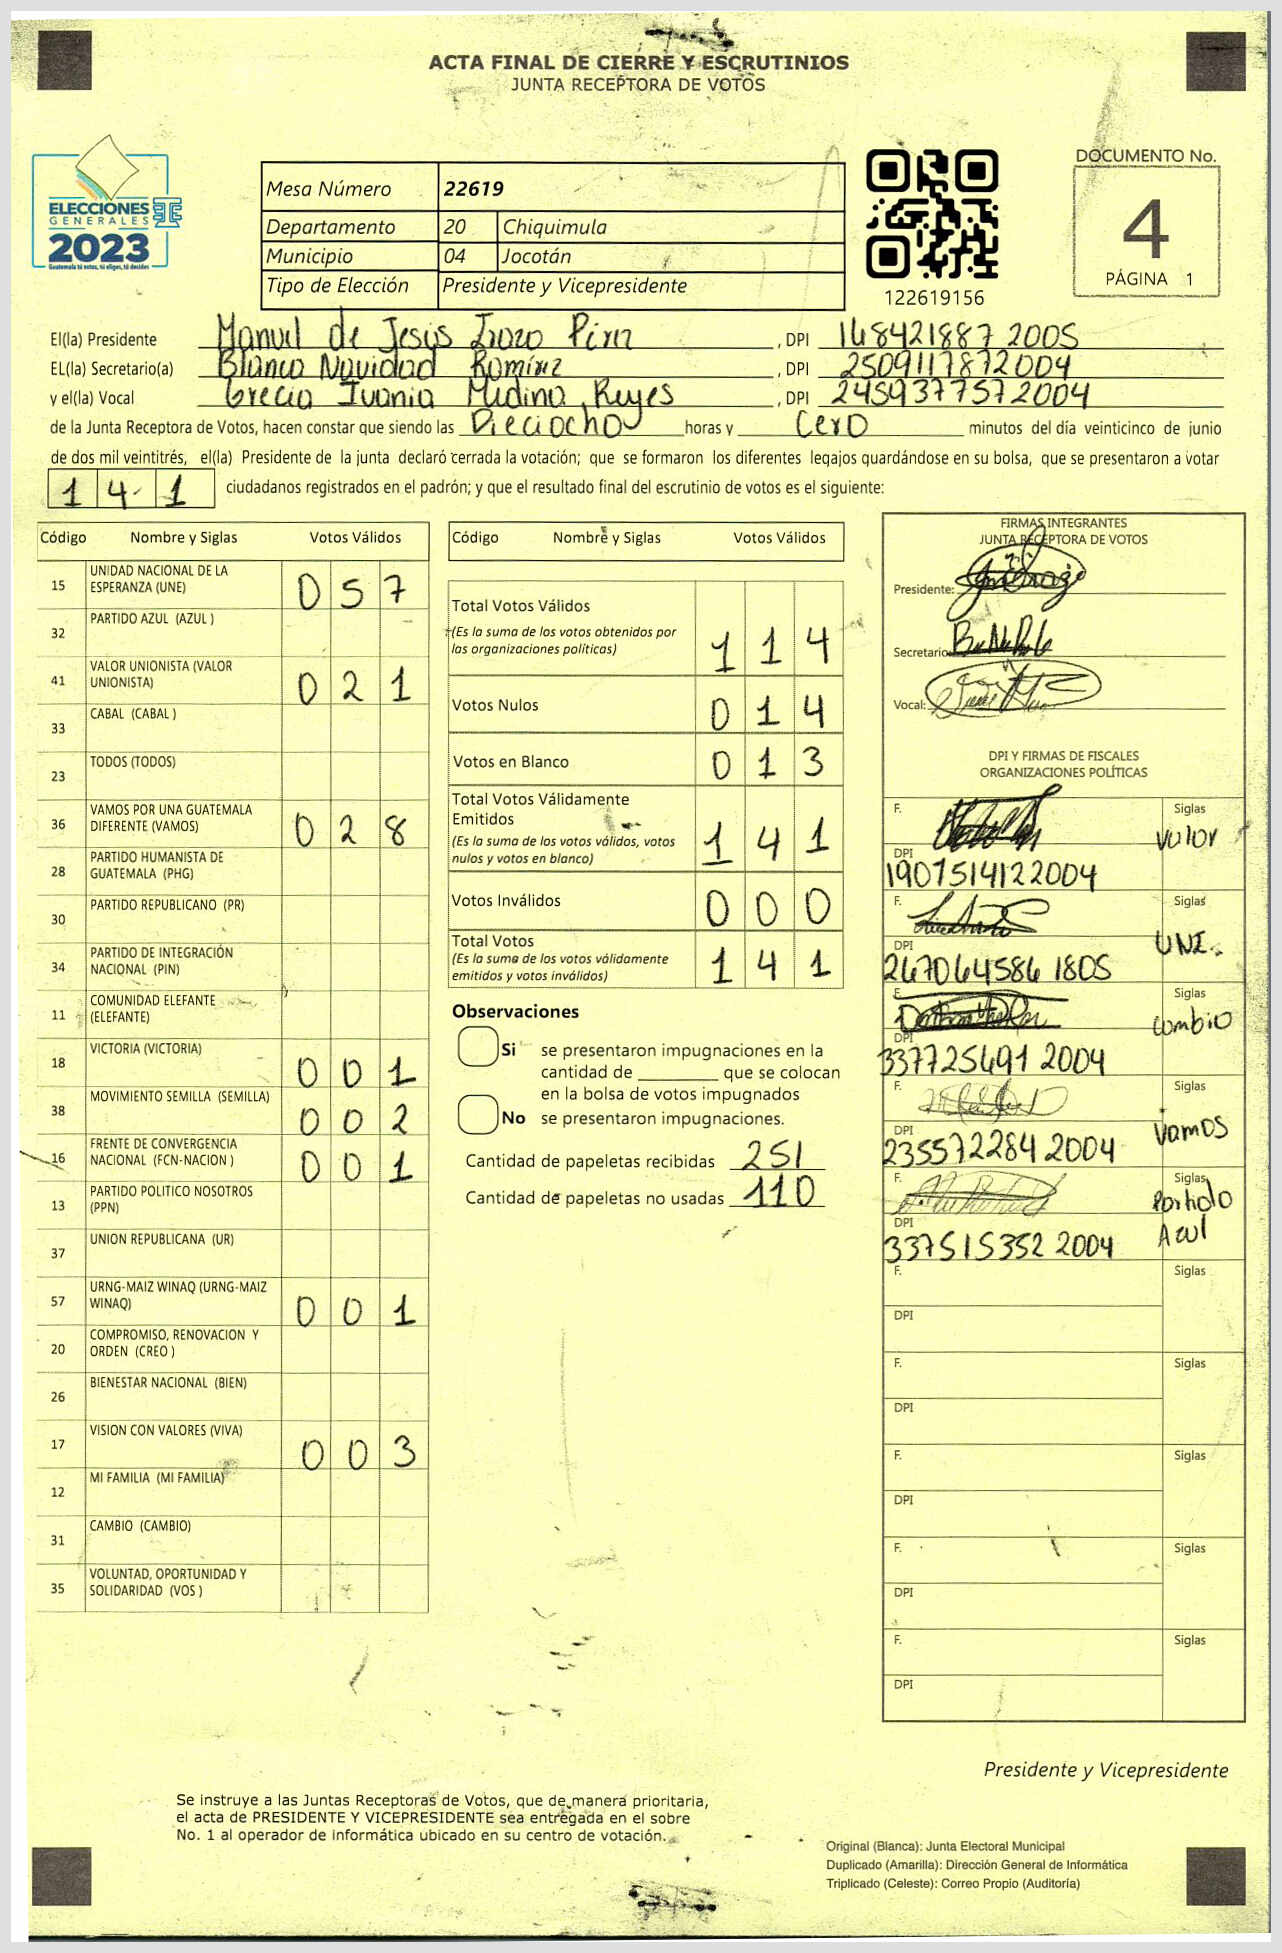 ACTA FINAL DE CIERRE Y ESCRUTINIOS
JUNTA RECEPTORA DE VOTOS
ELECCIONES
GENERALES
2023
Guatemala tú votas, tú eliges, tú decides
Mesa Número 22619
Departamento 20 Chiquimula
Municipio 04 Jocotán
Tipo de Elección Presidente y Vicepresidente
122619156
DOCUMENTO No.
4
PÁGINA 1
El(la) Presidente Manuel de Jesús , DPI 168421887 2005
EL(la) Secretario(a) Blanca Navidad Ramírez , DPI 2509117872004
y el(la) Vocal Grecia Ivania Medina Reyes , DPI 2459377572004
de la Junta Receptora de Votos, hacen constar que siendo las Dieciocho horas y cero minutos del día veinticinco de junio
de dos mil veintitrés, el(la) Presidente de la junta declaró cerrada la votación; que se formaron los diferentes legajos guardándose en su bolsa, que se presentaron a votar
1 4 1 ciudadanos registrados en el padrón; y que el resultado final del escrutinio de votos es el siguiente:
Código Nombre y Siglas Votos Válidos
15 UNIDAD NACIONAL DE LA ESPERANZA (UNE) 0 5 7
32 PARTIDO AZUL (AZUL )
41 VALOR UNIONISTA (VALOR UNIONISTA) 0 2 1
33 CABAL (CABAL )
23 TODOS (TODOS)
36 VAMOS POR UNA GUATEMALA DIFERENTE (VAMOS) 0 2 8
28 PARTIDO HUMANISTA DE GUATEMALA (PHG)
30 PARTIDO REPUBLICANO (PR)
34 PARTIDO DE INTEGRACIÓN NACIONAL (PIN)
11 COMUNIDAD ELEFANTE (ELEFANTE)
18 VICTORIA (VICTORIA) 0 0 1
38 MOVIMIENTO SEMILLA (SEMILLA) 0 0 2
16 FRENTE DE CONVERGENCIA NACIONAL (FCN-NACION ) 0 0 1
13 PARTIDO POLITICO NOSOTROS (PPN)
37 UNION REPUBLICANA (UR)
57 URNG-MAIZ WINAQ (URNG-MAIZ WINAQ) 0 0 1
20 COMPROMISO, RENOVACION Y ORDEN (CREO )
26 BIENESTAR NACIONAL (BIEN)
17 VISION CON VALORES (VIVA) 0 0 3
12 MI FAMILIA (MI FAMILIA)
31 CAMBIO (CAMBIO)
35 VOLUNTAD, OPORTUNIDAD Y SOLIDARIDAD (VOS )
Código Nombre y Siglas Votos Válidos
Total Votos Válidos
(Es la suma de los votos obtenidos por
las organizaciones políticas) 1 1 4
Votos Nulos 0 1 4
Votos en Blanco 0 1 3
Total Votos Válidamente
Emitidos
(Es la suma de los votos válidos, votos
nulos y votos en blanco) 1 4 1
Votos Inválidos 0 0 0
Total Votos
(Es la suma de los votos válidamente
emitidos y votos inválidos) 1 4 1
Observaciones
Si se presentaron impugnaciones en la
cantidad de ________ que se colocan
en la bolsa de votos impugnados
No se presentaron impugnaciones.
Cantidad de papeletas recibidas 251
Cantidad de papeletas no usadas 110
FIRMAS INTEGRANTES
JUNTA RECEPTORA DE VOTOS
Presidente:
Secretario
Vocal:
DPI Y FIRMAS DE FISCALES
ORGANIZACIONES POLÍTICAS
F. Siglas
Valor
DPI
1907514122004
F. Siglas
UNE.
DPI
2670645861805
F. Siglas
Cambio
DPI
337725691 2004
F. Siglas
Vamos
DPI
235572284 2004
F. Siglas
Partido
Azul
DPI
337515352 2004
F. Siglas
DPI
F. Siglas
DPI
F. Siglas
DPI
F. Siglas
DPI
F. Siglas
DPI
Presidente y Vicepresidente
Se instruye a las Juntas Receptoras de Votos, que de manera prioritaria,
el acta de PRESIDENTE Y VICEPRESIDENTE sea entregada en el sobre
No. 1 al operador de informática ubicado en su centro de votación.
Original (Blanca): Junta Electoral Municipal
Duplicado (Amarilla): Dirección General de Informática
Triplicado (Celeste): Correo Propio (Auditoría)